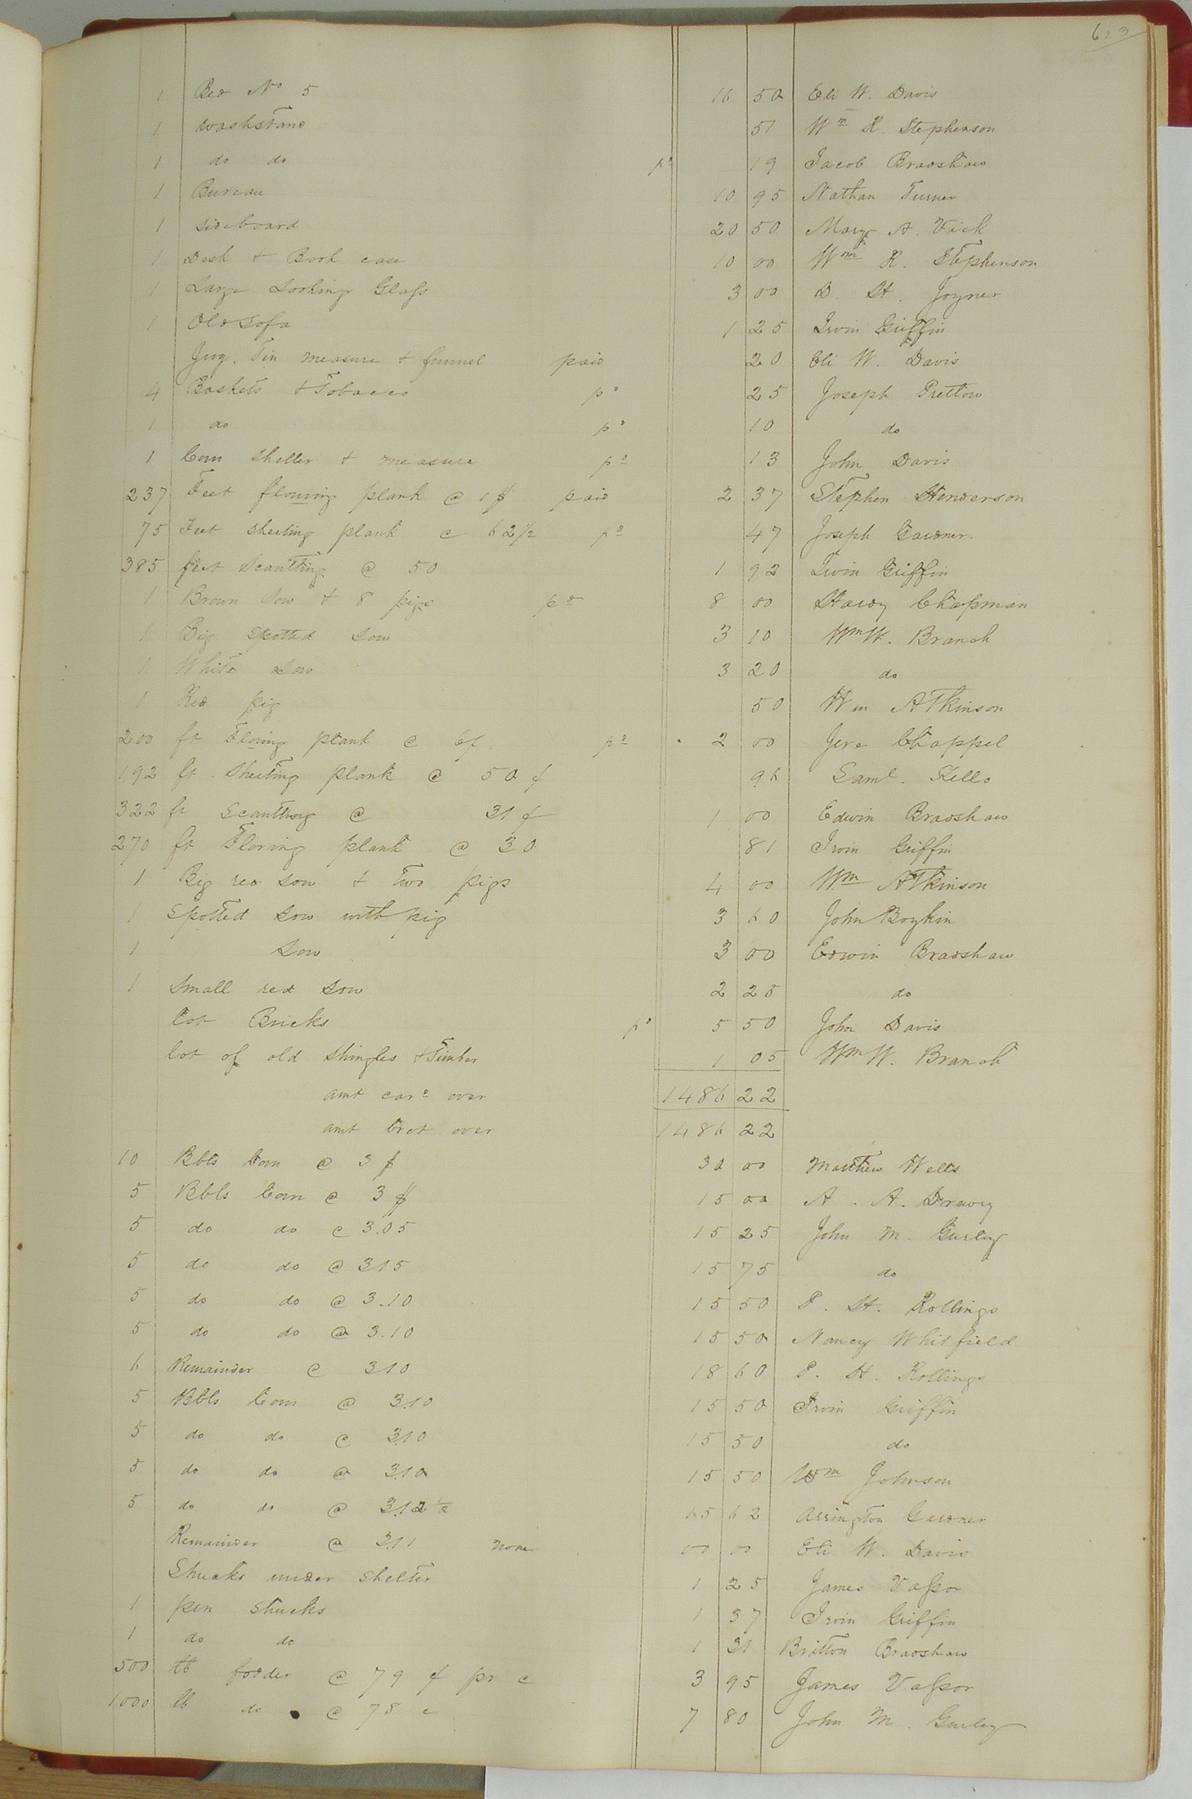 623
1 Bed No 5 16 50 Eli W. Davis
1 Washstand 51 Wm H. Stephenson
1 do do pd 19 Jacob Bradshaw
1 Bureau 10 95 Nathan Turner
1 Sideboard 20 50 Mary A. Vick
1 Desk & Book case 10 00 Wm H. Stephenson
1 Large Looking Glass 3 00 D. H. Joyner
1 Old Sofa 1 25 Irvin Griffin
Jug. Tin measure & funnel paid 20 Eli W. Davis
4 Baskets & Tobacco pd 25 Joseph Pretlow
1 do pd 10 do
1 Corn Sheller & measure pd 13 John Davis
237 Feet flouring plank @ 1$ paid 2 37 Stephen Henderson
75 Feet sheeting plank @ 62½ pd 47 Joseph Gardner
385 feet Scantting @ 50 1 92 Irvin Griffin
1 Brown Sow & 8 pigs pd 8 00 Hardy Chapman
1 Big Spotted Sow 3 10 Wm W. Branch
1 White sow 3 20 do
1 Red pig 50 Wm Atkinson
200 ft Floring plank @ pd 2 00 Jere Chappel
192 ft Sheeting plank @ 50 ¢ 96 Saml. Kello
322 ft Scantting @ 31 ¢ 1 00 Edwin Bradshaw
270 ft Floring plank @ 30 81 Irvin Griffin
1 Big red sow & Two pigs 4 00 Wm Atkinson
1 Spotted Sow with pig 3 60 John Boykin
1 Sow 3 00 Edwin Bradshaw
1 Small red Sow 2 25 do
Lot Bricks pd 5 50 John Davis
lot of old Shingles & Timber 1 05 Wm W. Branch
amt card over 1486 22
amt brot over 1486 22
10 Bbls Corn @ 3 $ 30 00 Matthew Wells
5 Bbls Corn @ 3 $ 15 00 A. A. Drewry
5 do do @ 3.05 15 25 John M. Gurley
5 do do @ 315 15 75 do
5 do do @ 3.10 15 50 P. H. Rollings
5 do do @ 3.10 15 50 Nancy Whitfield
6 Remainder @ 310 18 60 P. H. Rollings
5 Bbls Corn @ 310 15 50 Irvin Griffin
5 do do @ 310 15 50 do
5 do do @ 310 15 50 Wm Johnson
5 do do @ 312½ 15 62 Arrington Gardner
Remainder @ 311 none 00 00 Eli W. Davis
Shucks under shelter 1 25 James Vassor
1 pen shucks 1 37 Irvin Griffin
1 do do 1 31 Britton Bradshaw
500 lb fodder @ 79 ¢ pr c 3 95 James Vassor
1000 lb do @ 78 c 7 80 John M. Gurley